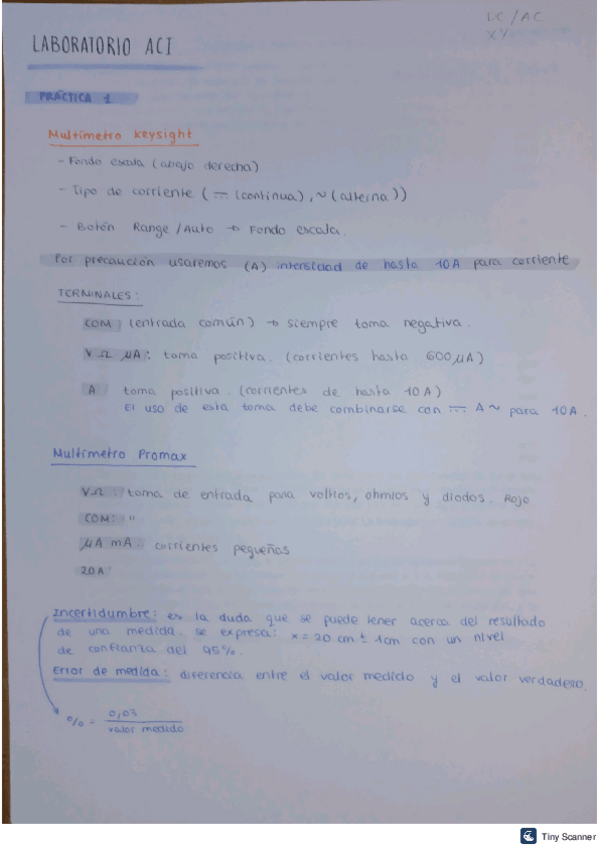 DC/AC
XY
LABORATORIO ACI
PRÁCTICA 1
Multímetro Keysight
- Fondo escala (abajo derecha)
- Tipo de corriente ( ⎓ (continua), ~ (alterna))
- Botón Range/Auto → Fondo escala.
Por precaución usaremos (A) intensidad de hasta 10A para corriente
TERMINALES:
COM (entrada común) → siempre toma negativa.
V.Ω µA: toma positiva. (corrientes hasta 600µA)
A toma positiva. (corrientes de hasta 10A)
El uso de esta toma debe combinarse con ⎓ A ~ para 10A.
Multímetro Promax
V.Ω: toma de entrada para voltios, ohmios y diodos. Rojo
COM: "
µA mA: corrientes pequeñas
20A:
Incertidumbre: es la duda que se puede tener acerca del resultado
de una medida. se expresa: x = 20 cm ± 1cm con un nivel
de confianza del 95%.
Error de medida: diferencia entre el valor medido y el valor verdadero.
% = 0,03 / valor medido
Tiny Scanner